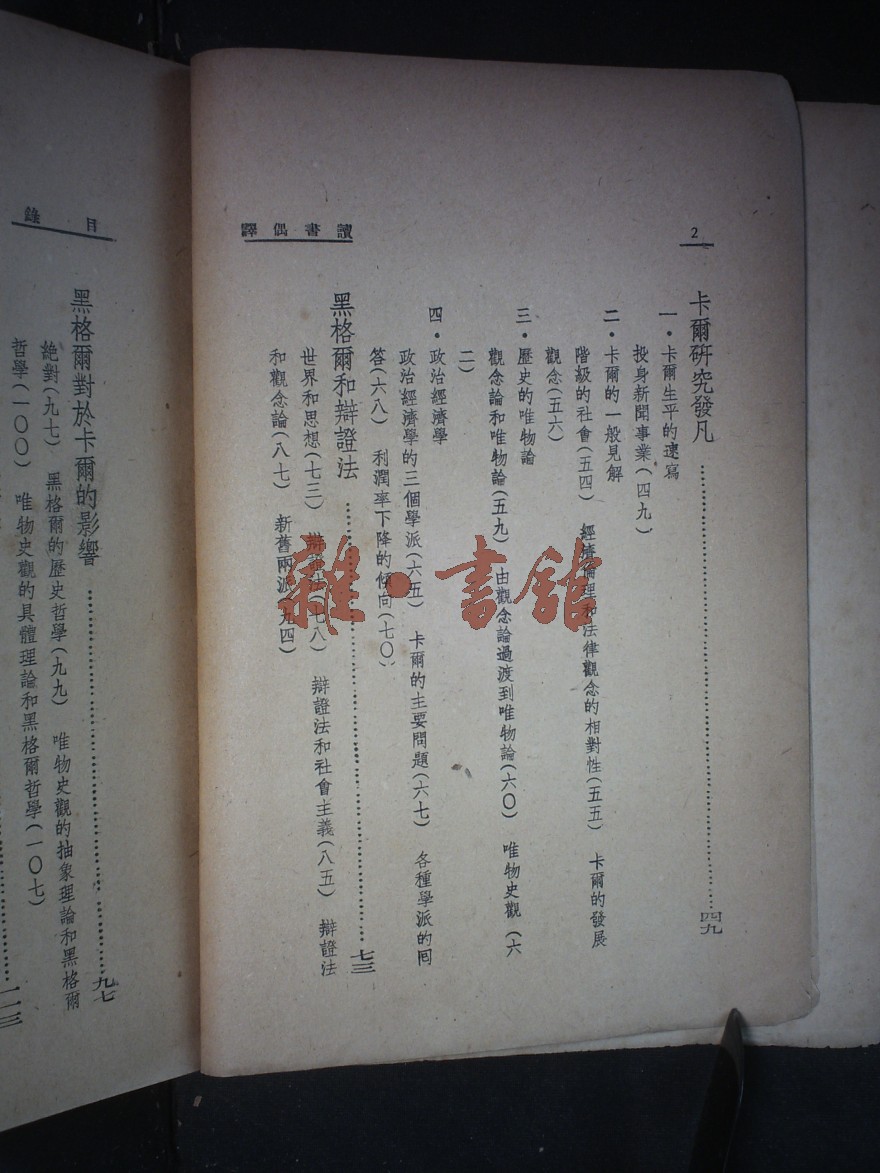 2
讀書偶譯
卡爾研究發凡……四九
一・卡爾生平的速寫
投身新聞事業(四九)
二・卡爾的一般見解
階級的社會(五四) 經濟倫理和法律觀念的相對性(五五) 卡爾的發展
觀念(五六)
三・歷史的唯物論
觀念論和唯物論(五九) 由觀念論過渡到唯物論(六〇) 唯物史觀(六
二)
四・政治經濟學
政治經濟學的三個學派(六五) 卡爾的主要問題(六七) 各種學派的回
答(六八) 利潤率下降的傾向(七〇)
黑格爾和辯證法……七三
世界和思想(七三) 辯證法(七八) 辯證法和社會主義(八五) 辯證法
和觀念論(八七) 新舊兩派(九四)
目錄
黑格爾對於卡爾的影響……九七
絕對(九七) 黑格爾的歷史哲學(九九) 唯物史觀的抽象理論和黑格爾
哲學(一〇〇) 唯物史觀的具體理論和黑格爾哲學(一〇七)
……一一三
雜・書館